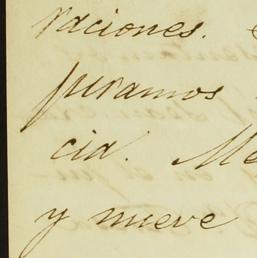 raciones.
peramos
cia. Me
y nueve